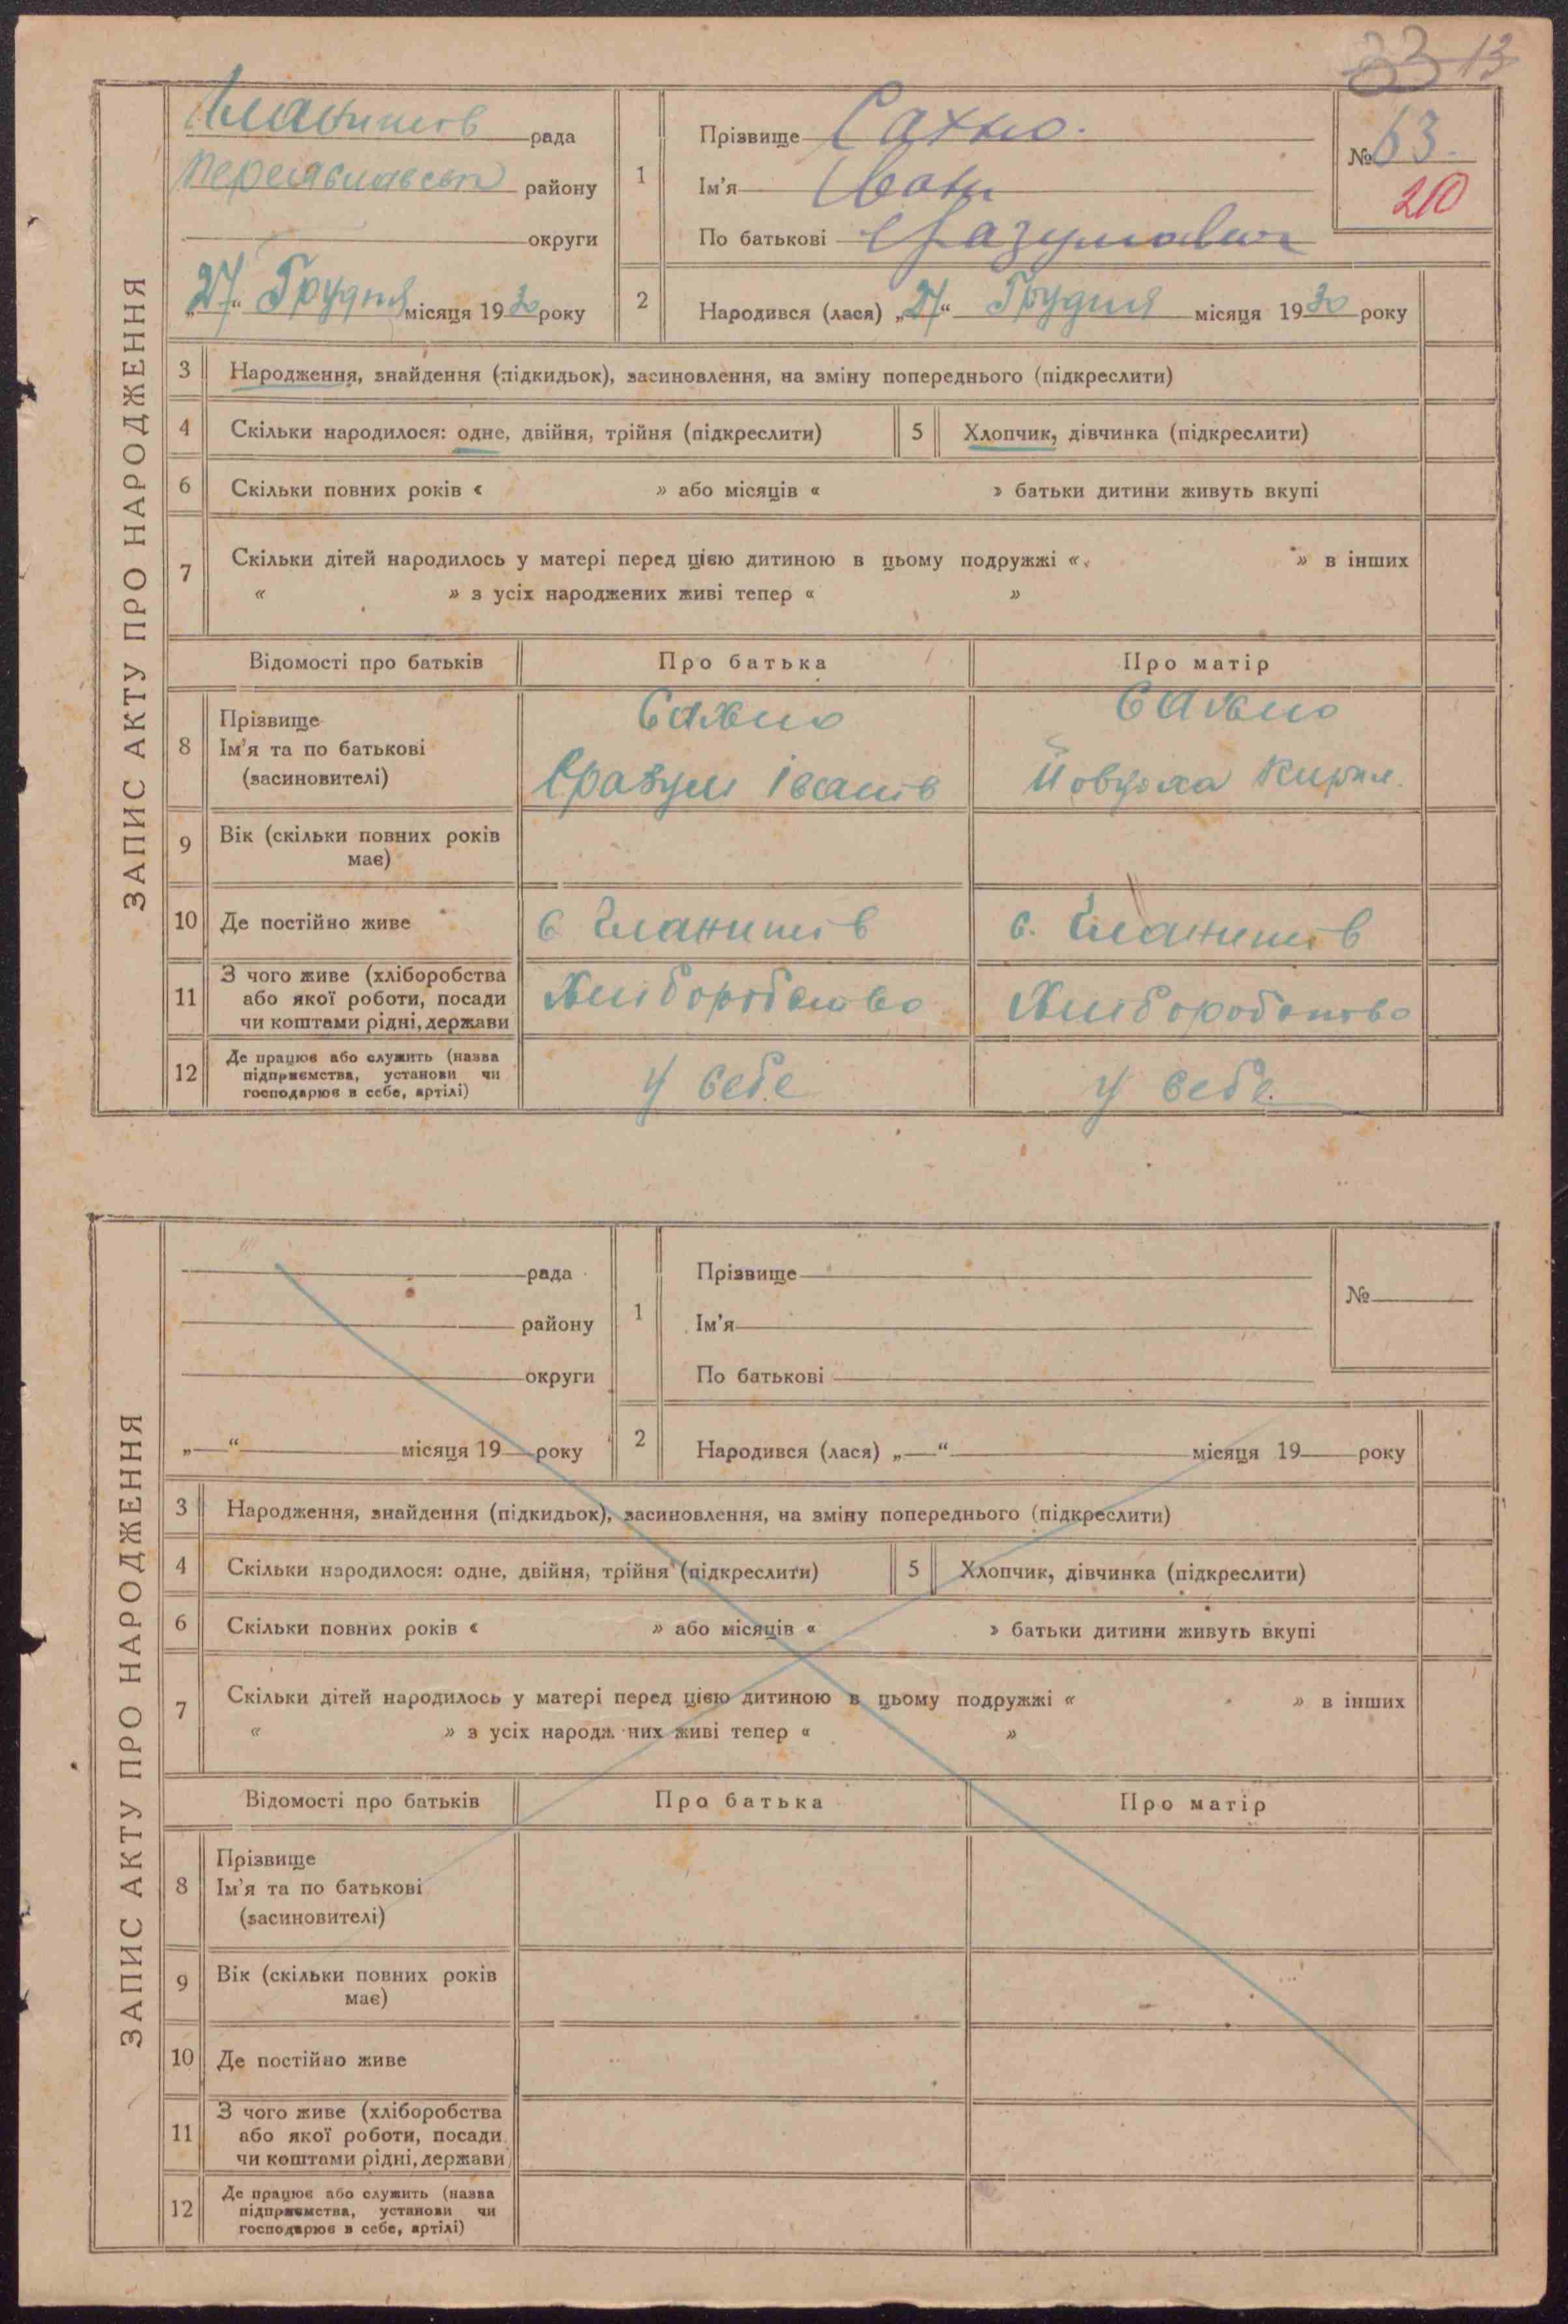 33 13
рада
Переяславськ району
округи
„27“ Грудня місяця 1930 року
1
Прізвище Сахно.
Ім'я Іван
По батькові
№ 63.
210
2
Народився (лася) „27“ Грудня місяця 1930 року
ЗАПИС АКТУ ПРО НАРОДЖЕННЯ
3 Народження, знайдення (підкидьок), засиновлення, на зміну попереднього (підкреслити)
4 Скільки народилося: одне, двійня, трійня (підкреслити)
5 Хлопчик, дівчинка (підкреслити)
6 Скільки повних років « » або місяців « » батьки дитини живуть вкупі
7 Скільки дітей народилось у матері перед цією дитиною в цьому подружжі « » в інших
« » з усіх народжених живі тепер « »
Відомості про батьків
Про батька
Про матір
8
Прізвище
Ім'я та по батькові
(засиновителі)
Сахно
Іванів
Сахно
Кирил.
9
Вік (скільки повних років
має)
10 Де постійно живе
с.
с.
11
З чого живе (хліборобства
або якої роботи, посади
чи коштами рідні, держави
Хліборобство
Хліборобство
12
Де працює або служить (назва
підприємства, установи чи
господарює в себе, артілі)
У себе
У себе.
рада
району
округи
„ “ місяця 19 року
1
Прізвище
Ім'я
По батькові
№
2
Народився (лася) „ “ місяця 19 року
ЗАПИС АКТУ ПРО НАРОДЖЕННЯ
3 Народження, знайдення (підкидьок), засиновлення, на зміну попереднього (підкреслити)
4 Скільки народилося: одне, двійня, трійня (підкреслити)
5 Хлопчик, дівчинка (підкреслити)
6 Скільки повних років « » або місяців « » батьки дитини живуть вкупі
7 Скільки дітей народилось у матері перед цією дитиною в цьому подружжі « » в інших
« » з усіх народж них живі тепер « »
Відомості про батьків
Про батька
Про матір
8
Прізвище
Ім'я та по батькові
(засиновителі)
9
Вік (скільки повних років
має)
10 Де постійно живе
11
З чого живе (хліборобства
або якої роботи, посади
чи коштами рідні, держави)
12
Де працює або служить (назва
підприємства, установи чи
господарює в себе, артілі)